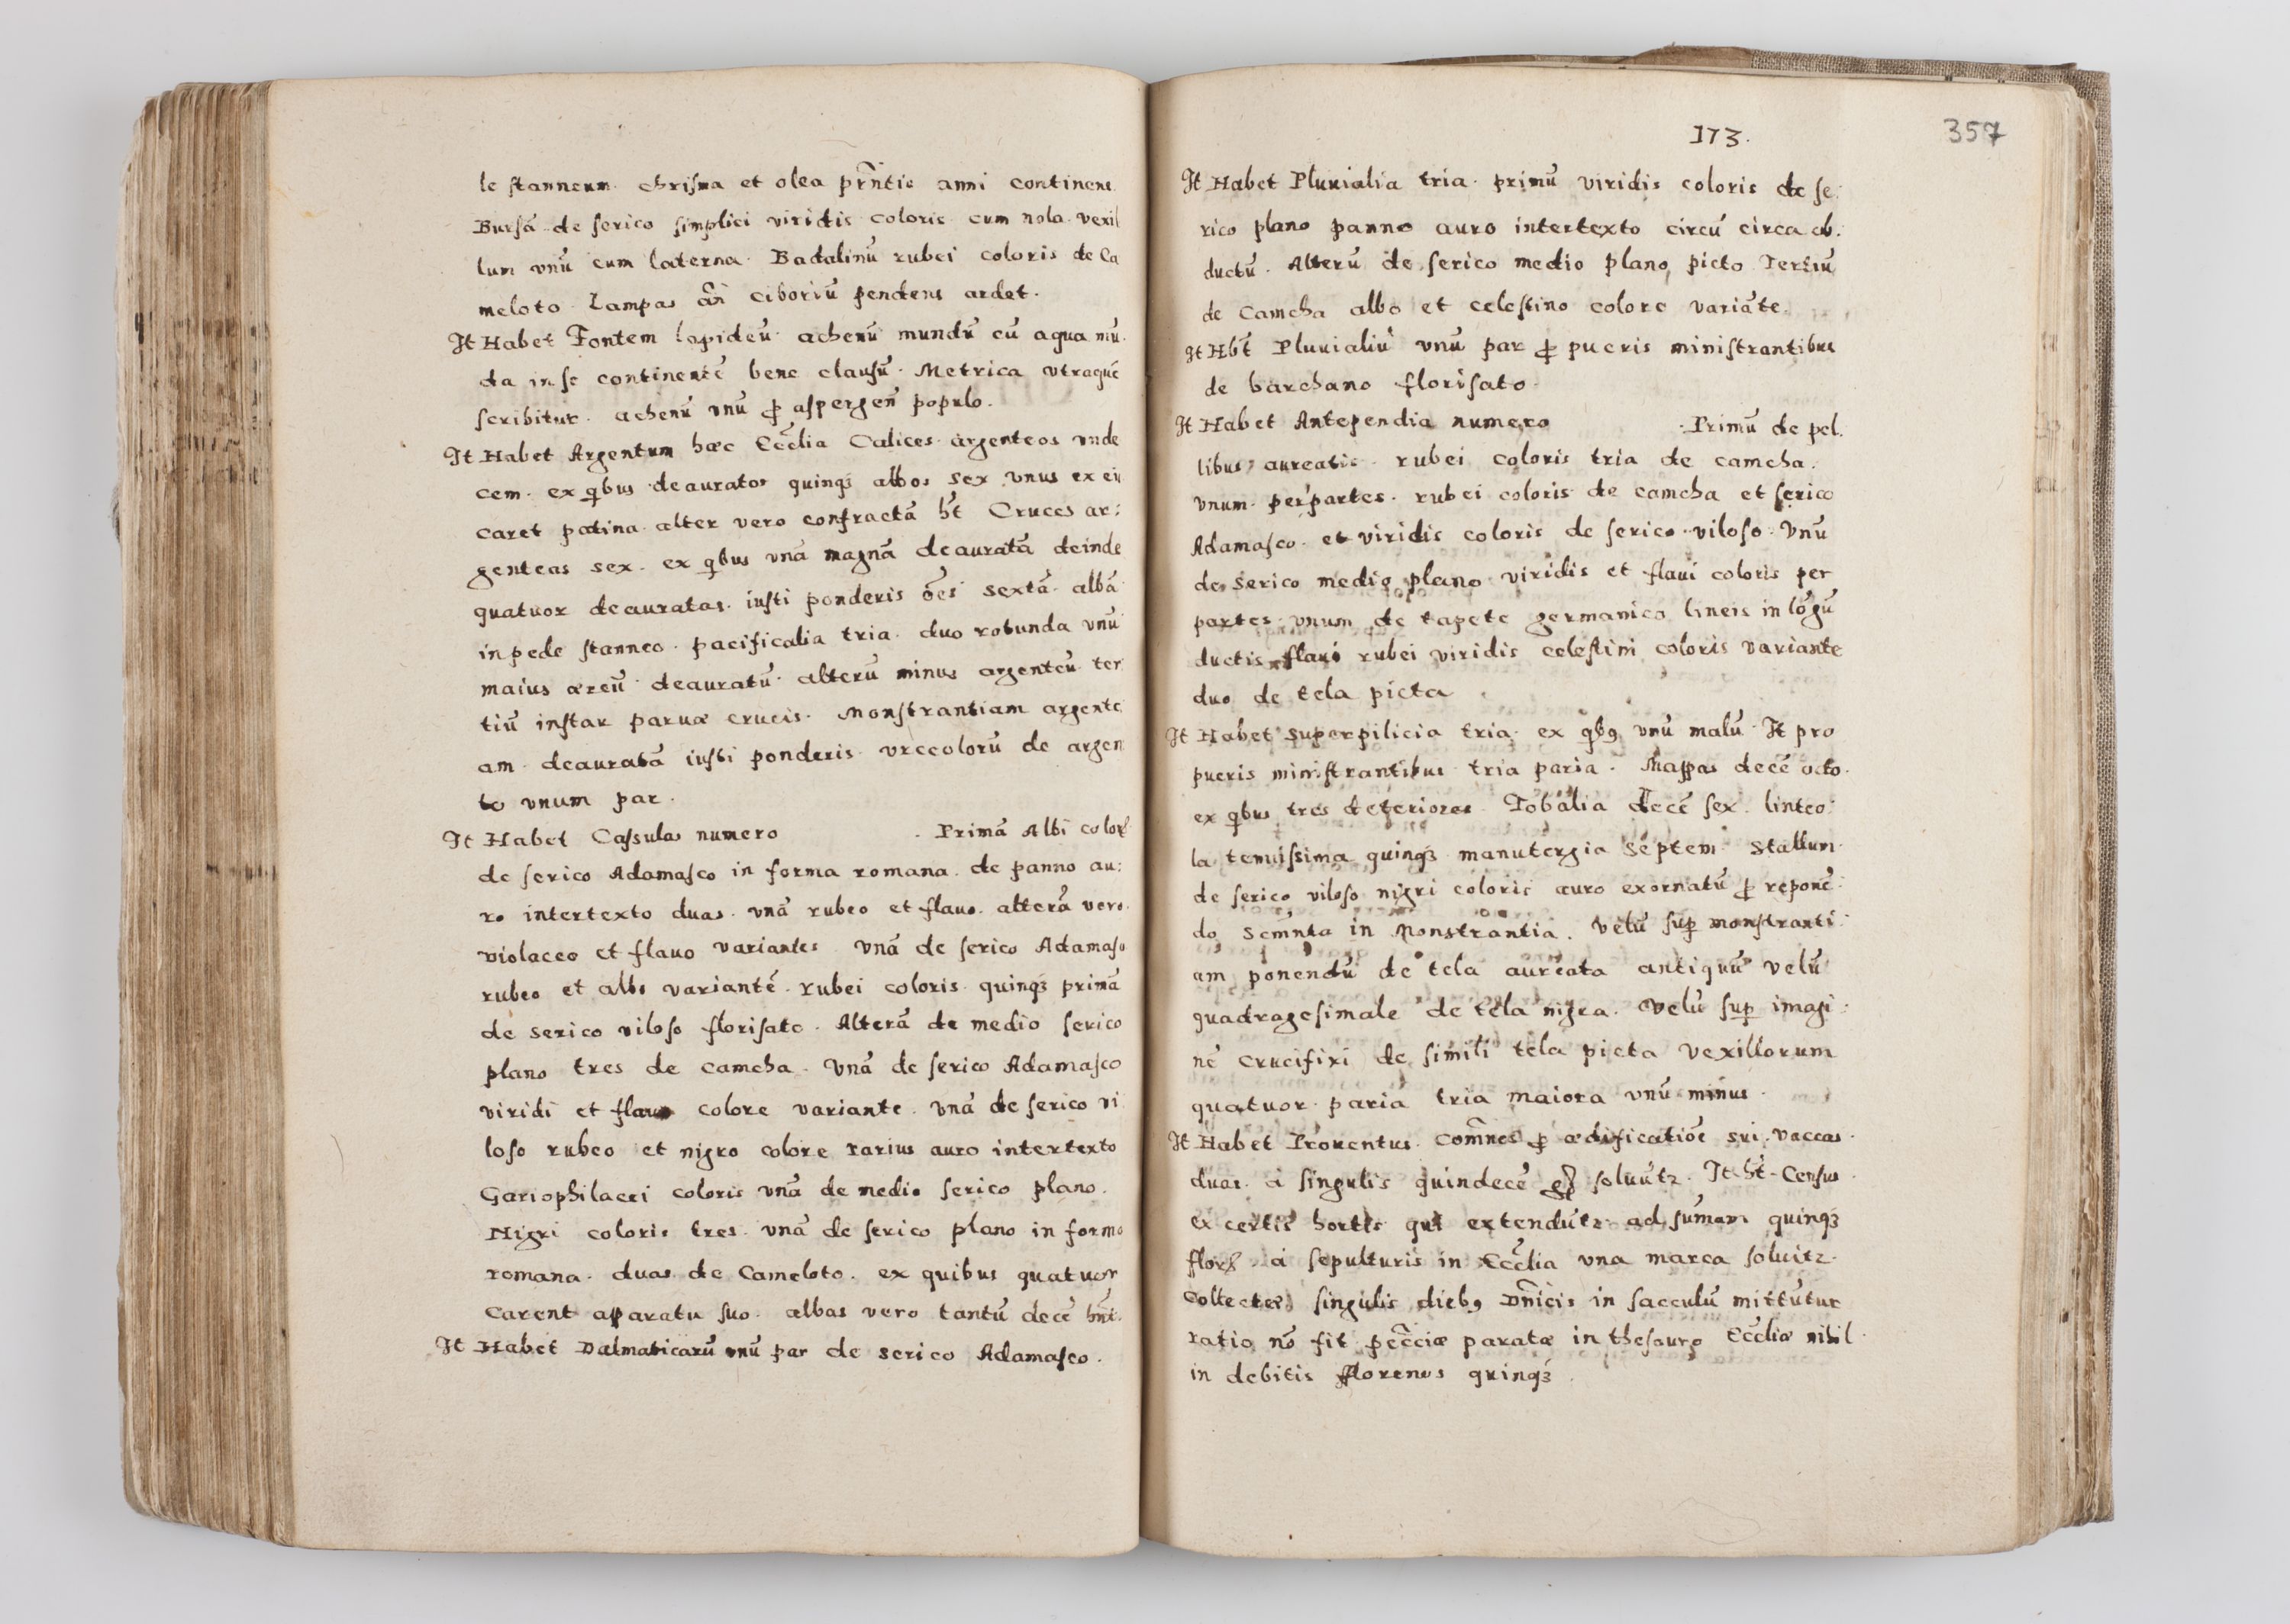 le stanneum chrisma et olea prñtis anni continens
Bursã de serico simplici viridis coloris cum nola vexil
lum vnũ cum laterna Badalinũ rubei coloris de Ca
meloto Lampas añ ciboriũ pendens ardet.
It Habet Fontem lapideũ achenũ mundũ cũ aqua mũ
da in se continentẽ bene clausũ. Metrica vtraque
scribitur. achenũ vnũ ꝑ aspergeñ populo.
It Habet Argentum hæc Eccĩlia Calices argenteos vnde
cem. ex qibus deauratos quinqꝫ albos sex vnus ex eis
caret patina alter vero confractã ht̃ Cruces ar:
genteas sex. ex qibus vnã magnã deauratã deinde
quatuor deauratas. iusti ponderis oẽs sextã albã
in pede stanneo. pacificalia tria. duo rotunda vnũ
maius æreũ deauratũ alterũ minus argenteũ ter
tiũ instar paruæ crucis. Monstrantiam argente
am deauratã iusti ponderis vrceolorũ de argen
to vnum par.
It Habet Casulas numero . Primã Albi color
de serico Adamasco in forma romana. de panno au:
ro intertexto duas. vnã rubeo et flauo. alterã vero
violaceo et flauo variantes vnã de serico Adamasc
rubeo et albo variantẽ. rubei coloris quinqꝫ primã
de serico viloso florisato. Alterã de medio serico
plano tres de camcha. Vnã de serico Adamasco
viridi et flauo colore variante. vnã de serico vi
loso rubeo et nigro colore rarius auro intertexto
Gariophilacei coloris vnã de medio serico plano.
Nigri coloris tres. vnã de serico plano in forma
romana. duas de Cameloto. ex quibus quatuor
Carent aparatu suo. albas vero tantũ decẽ hñt.
It Habet Dalmaticarũ vnũ par de serico Adamasco.
173.
357
It Habet Pluuialia tria. primũ viridis coloris de se:
rico plano panno auro intertexto circũ circa ob:
ductũ. Alterũ de serico medio plano picto Tertiũ
de Camcha albo et celestino colore variãte.
It Hbt̃ Pluuialiũ vnũ par ꝑ pueris ministrantibus
de barchano florisato.
It Habet Antependia numero . Primũ de pel.
libus aureatis. rubei coloris tria de camcha.
vnum per partes. rubei coloris de camcha et serico
Adamasco. et viridis coloris de serico viloso. Vnũ
de serico medio plano viridis et flaui coloris per
partes. vnum de tapete germanico lineis in lõgũ
ductis flaui rubei viridis celestini coloris variante
duo de tela picta
It Habet superpilicia tria. ex qibꝫ vnũ malũ. It pro
pueris ministrantibus tria paria. Mappas decẽ octo.
ex qibus tres deteriores. Tobalia decẽ sex. linteo:
la tenuissima quinqꝫ manutergia Septem Stallum
de serico viloso nigri coloris auro exornatũ ꝑ reponẽ:
do Scm̃nta in Monstrantia. Velũ suꝑ monstranti:
am ponendũ de tela aureata antiquũ velũ
quadragesimale de tela nigra. Velũ suꝑ imagi:
nẽ Crucifixi de simili tela picta Vexillorum
quatuor paria tria maiora vnũ minus.
It Habet Prouentus. com̃nes ꝑ ædificatiõe sui. vaccas
duas. à singulis quindecẽ gß soluũtꝛ. It ht̃ Census
ex certis hortis qui extendũtꝛ ad sũmam quinqꝫ
florß. à sepulturis in Eccĩlia vna marca soluitꝛ.
Collectæ singulis diebꝫ Dñicis in sacculũ mittũtur
ratio nõ fit pecc̃iæ paratæ in thesauro Eccĩliæ nihil.
in debitis florenos quinqꝫ.